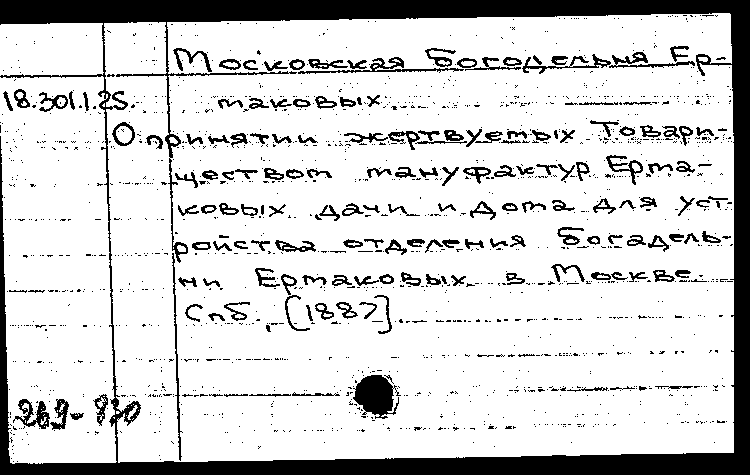 Московская Богодельня Ер-
18.301.1.25. маковых
О принятии жертвуемых Товари-
ществом мануфактур Ерма-
ковых дачи и дома для уст-
ройства отделения Богадель-
ни Ермаковых в Москве.
Спб., [1887].
269-830